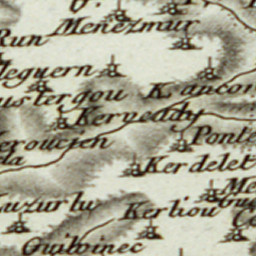 Menezmur
Run
leguern
ustergou
K.ancor
Kerveddy
Ponte
eroucien
la
Kerdelet
Me
uzurlu
Kerliou
Guilvinec